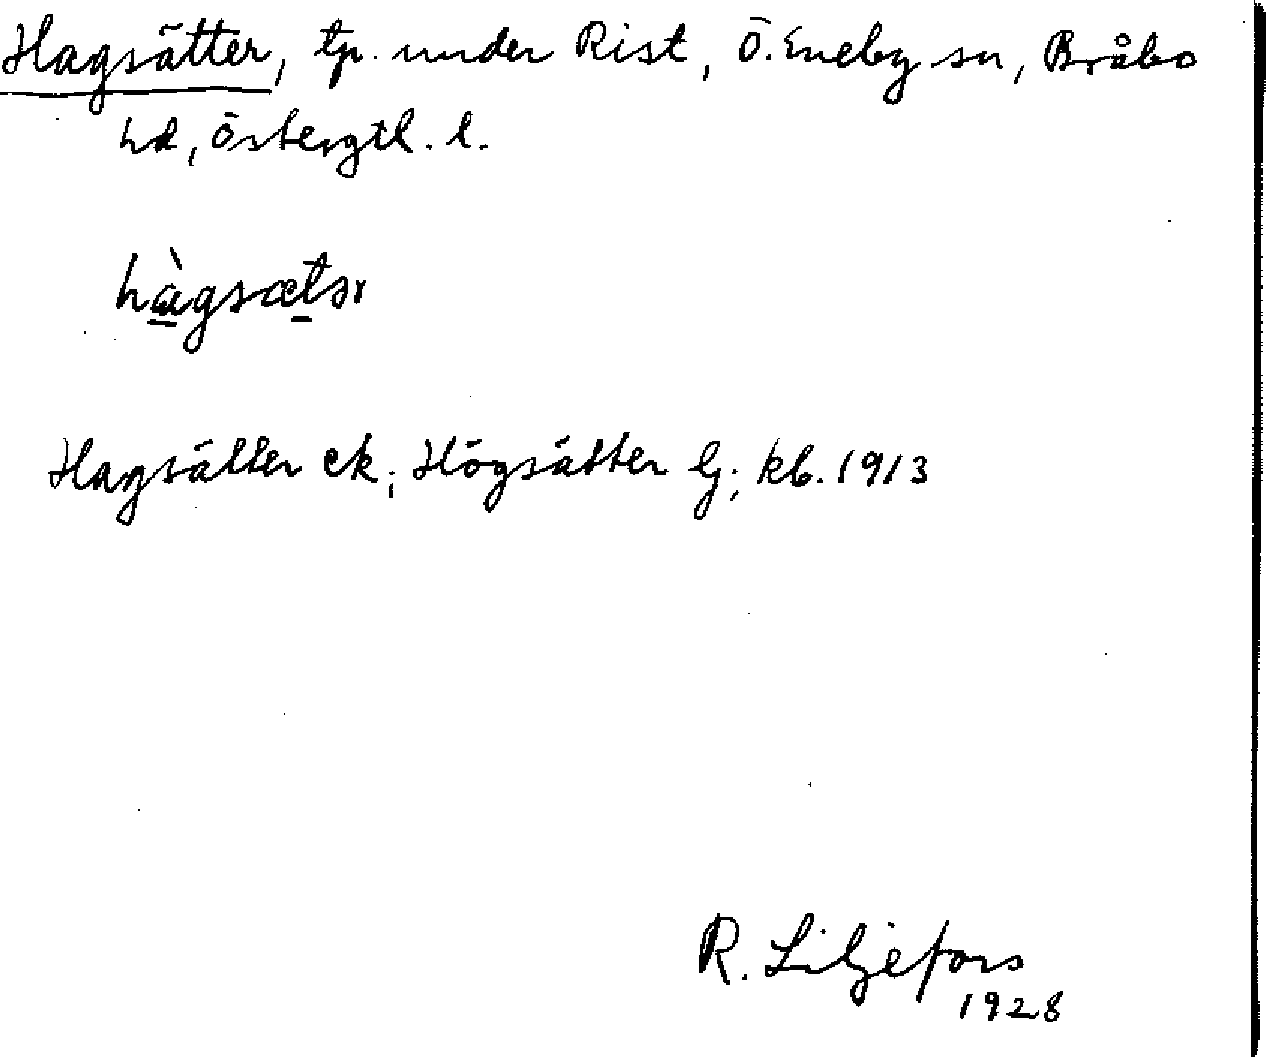 Hagsätter, tp. under Rist, Ö. Eneby sn, Bråbo
hd, Östergtl. l.
hàgsætər
Hagsätter ek; Högsätter Lj; kb. 1913
R. Liljefors
1928